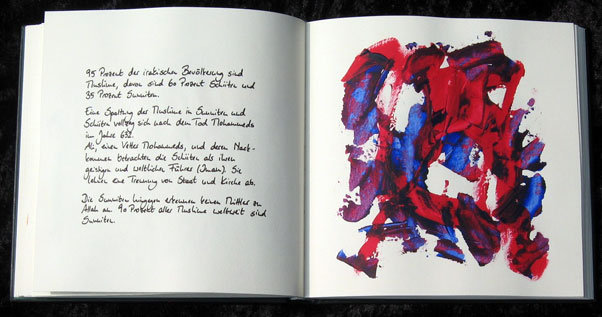 95 Prozent der irakischen Bevölkerung sind
Muslime, davon sind 60 Prozent Schiiten und
35 Prozent Sunniten.
Eine Spaltung der Muslime in Sunniten und
Schiiten vollzog sich nach dem Tod Mohammeds
im Jahre 632.
Ali, einen Vetter Mohammeds, und deren Nach-
kommen betrachten die Schiiten als ihren
geistigen und weltlichen Führer (Imam). Sie
lehnen eine Trennung von Staat und Kirche ab.
Die Sunniten hingegen erkennen keinen Mittler zu
Allah an. 90 Prozent aller Muslime weltweit sind
Sunniten.